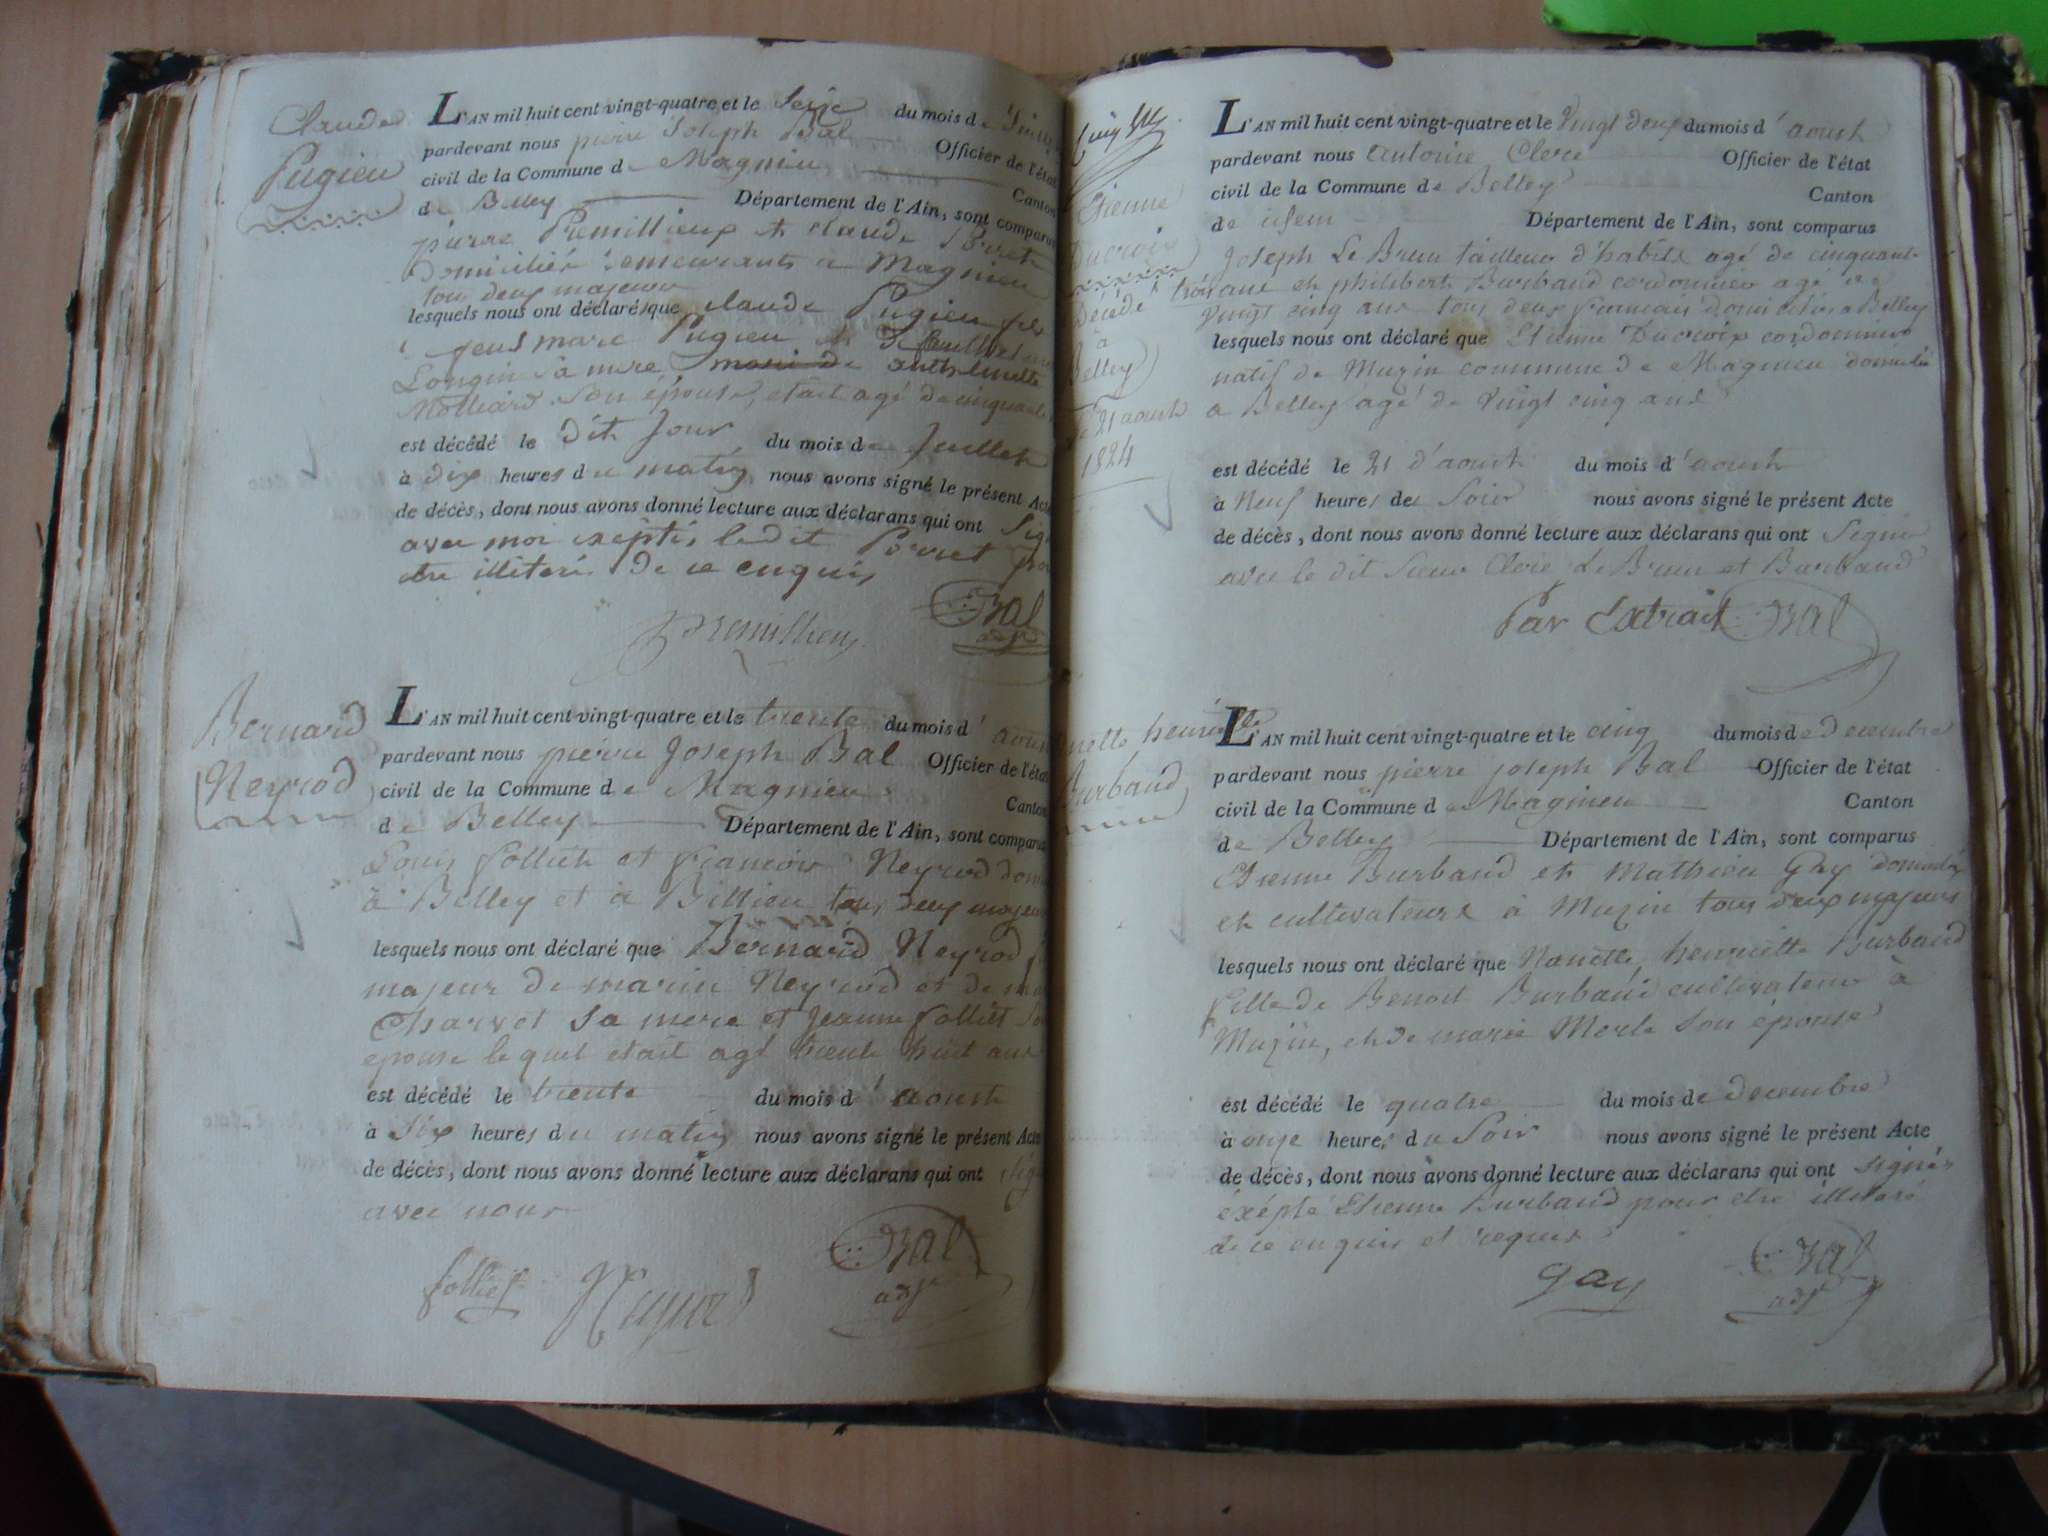 Claude
Pugieu
L'AN mil huit cent vingt-quatre et le seize du mois de Juillet
pardevant nous pierre Joseph Bal Officier de l'état
civil de la Commune de Magnieu Canton
de Belley Département de l'Ain, sont comparus
pierre Premillieux et claude
domiciliés demeurants a Magnieu
tous deux majeurs
lesquels nous ont déclaré que claude Pugieu fils
feu marc Pugieu et
Longin sa mere mari de anthelmette
Molliard son épouse, etait agé de cinquante
est décédé le dit Jour du mois de Juillet
à dix heures du matin nous avons signé le présent Acte
de décès, dont nous avons donné lecture aux déclarans qui ont
avec moi exeptés ledit Porret
etre illiteré de ce enquis
Premillieux Bal
adjt
Bernard
Neyrod
L'AN mil huit cent vingt-quatre et le trente du mois d'aoust
pardevant nous pierre Joseph Bal Officier de l'état
civil de la Commune de Magnieu Canton
de Belley Département de l'Ain, sont comparus
Louis folliet et francois Neyrod
à Belley et à Billieu tous deux majeurs
lesquels nous ont déclaré que Bernard Neyrod
majeur de marin Neyrod et de
Charvet sa mere et Jeanne folliet
epouse lequel etait agé trente huit ans
est décédé le trente du mois d'aoust
à Six heures du matin nous avons signé le présent Acte
de décès, dont nous avons donné lecture aux déclarans qui ont
avec nous
folliet Neyrod Bal
adjt
Etienne
Ducroix
Décédé
à
Belley
le 21 aoust
1824
L'AN mil huit cent vingt-quatre et le vingt deux du mois d'aoust
pardevant nous antoine Clerc Officier de l'état
civil de la Commune de Belley Canton
de idem Département de l'Ain, sont comparus
Joseph Le Brun tailleur d'habits agé de cinquante
trois ans et philibert Burbaud cordonnier agé de
vingt cinq ans tous deux francais domiciliés a Belley
lesquels nous ont déclaré que Etienne Ducroix cordonnier
natif de Muzin commune de Magnieu domicilié
a Belley agé de vingt cinq ans
est décédé le 21 d'aoust du mois d'aoust
à Neuf heures de Soir nous avons signé le présent Acte
de décès, dont nous avons donné lecture aux déclarans qui ont Signé
avec le dit Sieur Clerc Le Brun et Burbaud
Par Extrait Bal
henriette
Burbaud
L'AN mil huit cent vingt-quatre et le cinq du mois de Decembre
pardevant nous pierre joseph Bal Officier de l'état
civil de la Commune de Magnieu Canton
de Belley Département de l'Ain, sont comparus
Etienne Burbaud et Mathieu Gay domiciliés
et cultivateurs à Muzin tous deux majeurs
lesquels nous ont déclaré que Nanette henriette Burbaud
fille de Benoit Burbaud cultivateur à
Muzin, et de marie Merle son épouse
est décédé le quatre du mois de decembre
à onze heures du Soir nous avons signé le présent Acte
de décès, dont nous avons donné lecture aux déclarans qui ont signés
éxépté Etienne Burbaud pour etre illiteré
de ce enquis et requis
gay Bal
adjt